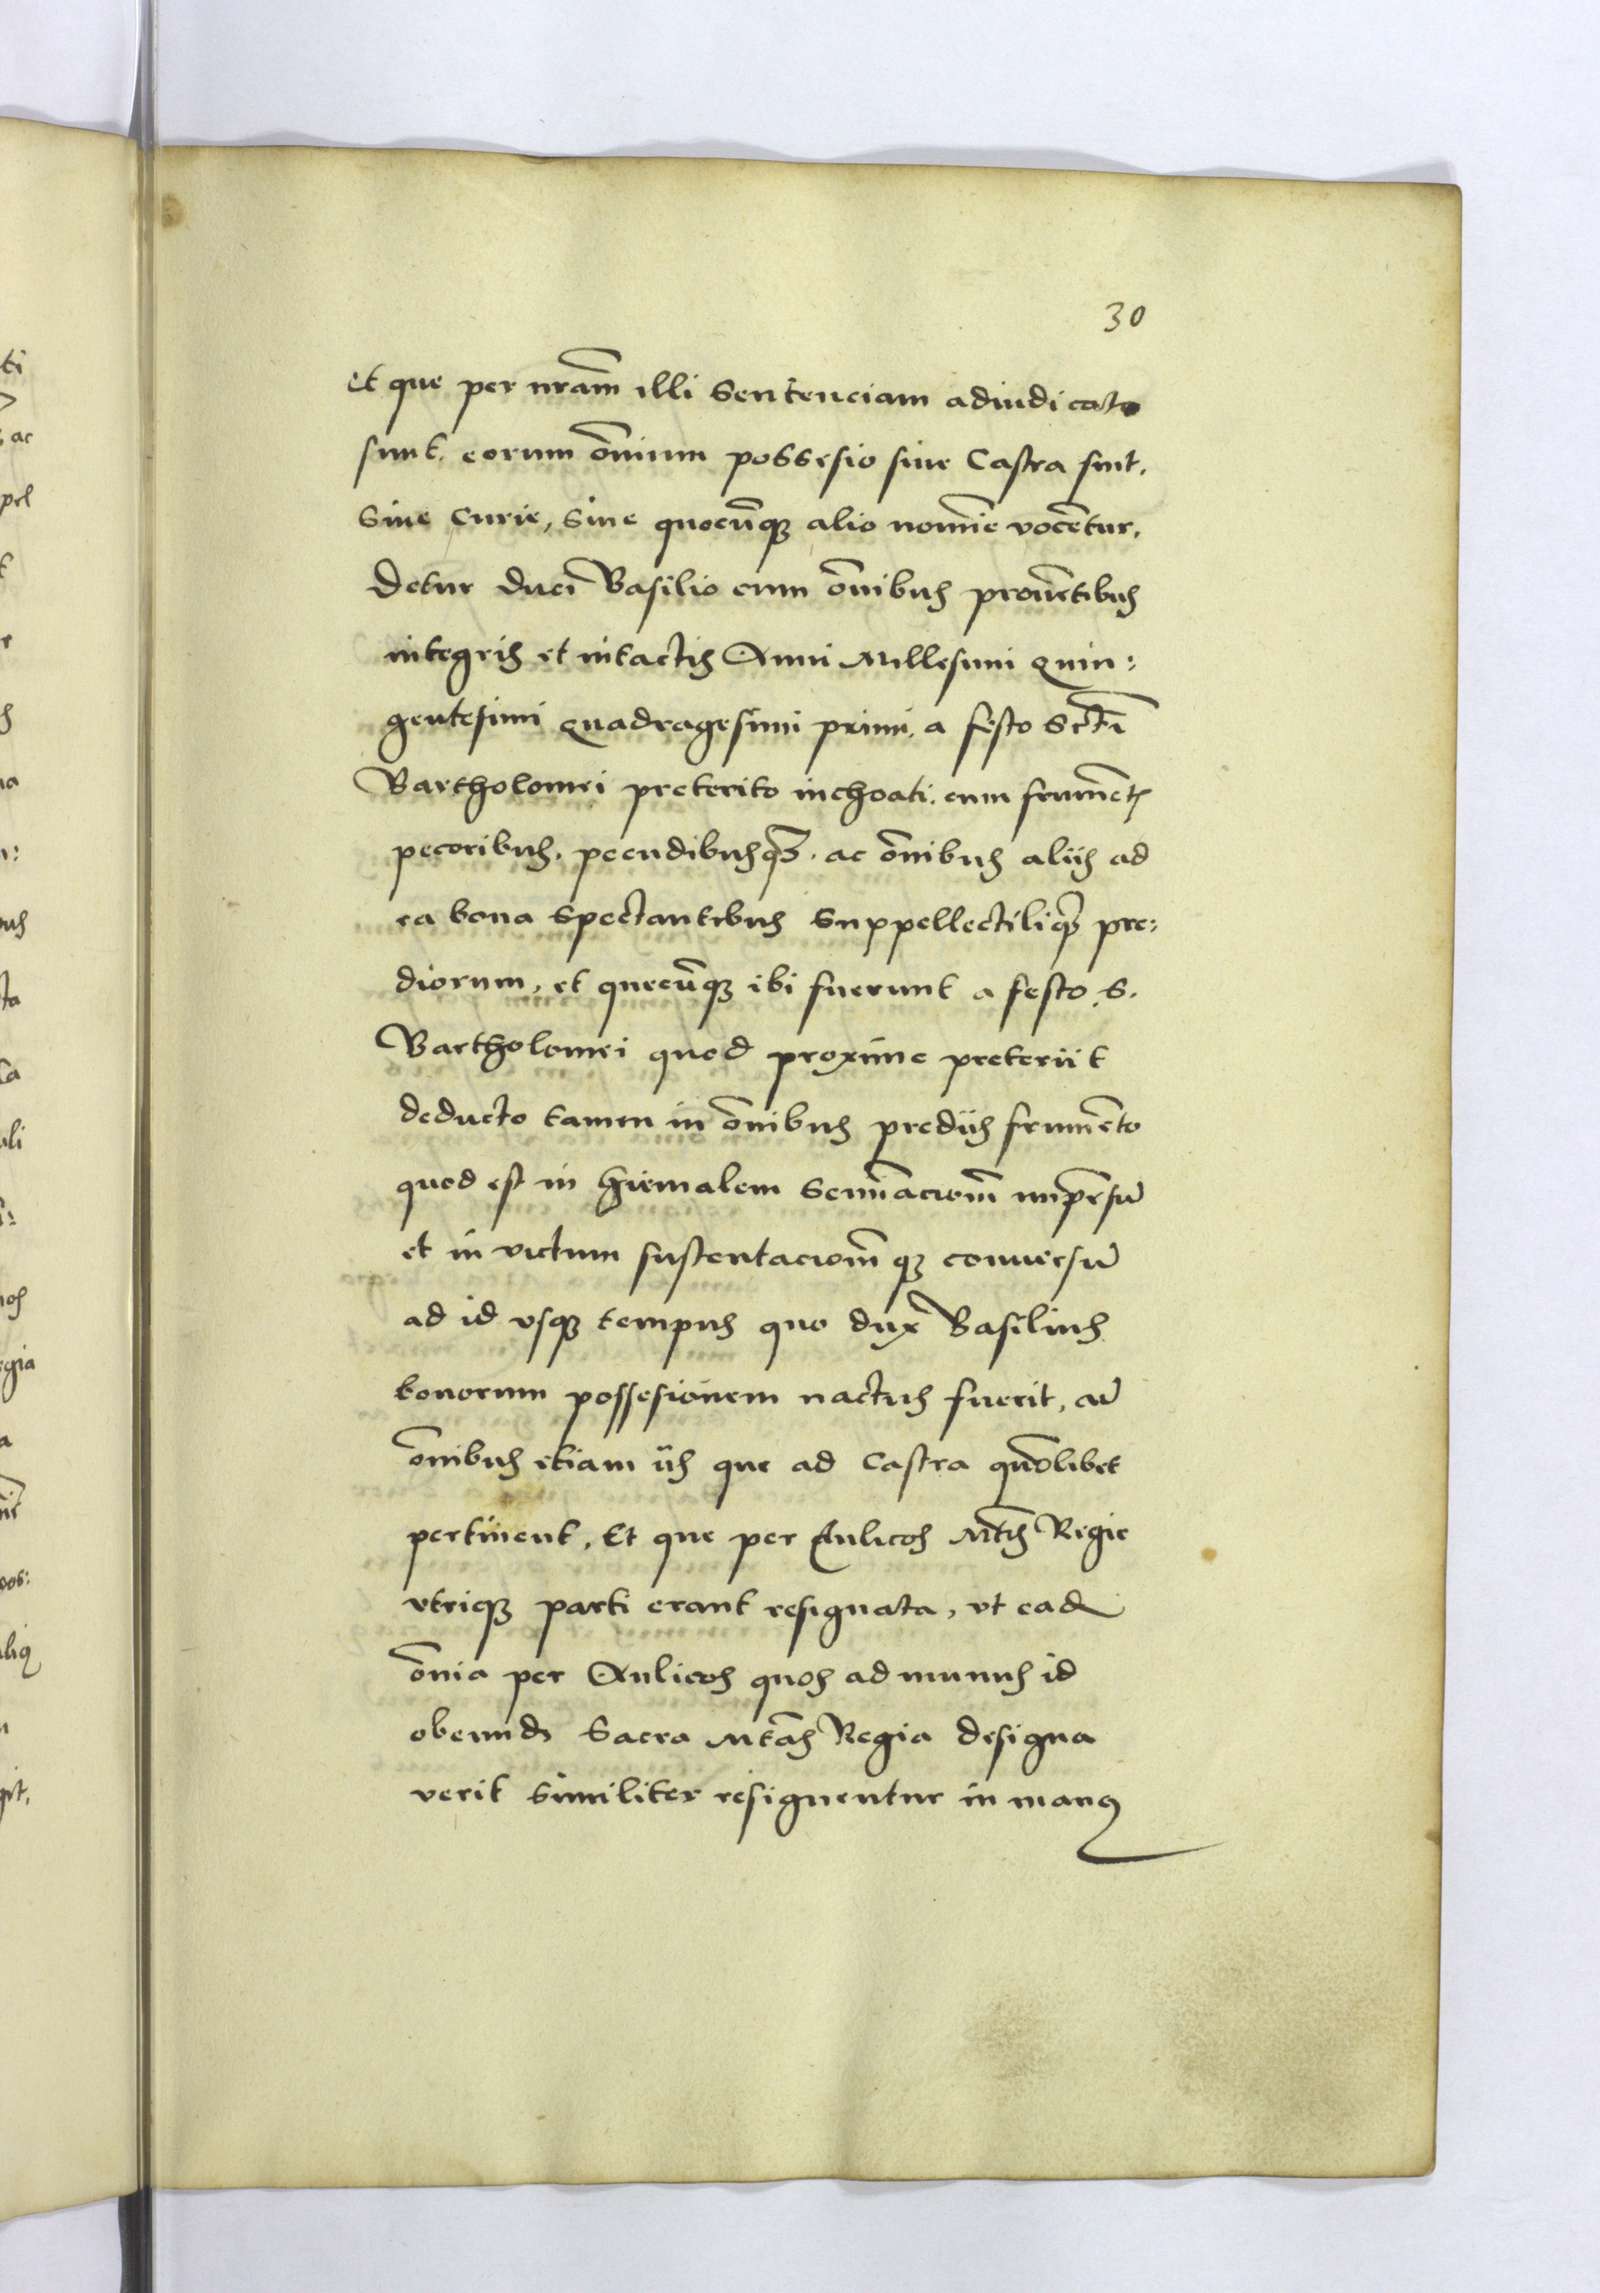 30
Et que per nr̃am illi Sentenciam adiudicata
sunt. eorum õmnium possesio siue Castra sint.
Siue Curie, Siue quocũq3 alio nomĩe vocẽtur.
Detur duci Basilio cum õnibus prouẽtibus
integris et intactis Anni Millesimi Quin:
gentesimi Quadragesimi primi. a festo Sctĩ
Bartholomei preterito inchoati. cum frumẽt
pecoribus. pecudibusq3. ac õnibus aliis ad
ea bona Spectantibus Suppellectiliq3 pre:
diorum, et quecũq3 ibi fuerunt a festo S.
Bartholomei quod proxime preteriit
deducto tamen in õnibus prediis frumẽto
quod est in hiemalem Semĩacionẽ impẽsũ
et in victum sustentacionẽq3 conuersũ
ad id vsq3 tempus quo dux Basilius
bonorum possesionem nactus fuerit, cũ
õnibus etiam iis que ad Castra quõlibet
pertinent. Et que per Aulicos Mtĩs Regie
vtriq3 parti erant resignata, vt eadẽ
õnia per Aulicos quos ad munus id
obeund Sacra Mtãs Regia designa
verit Similiter resignentur in manus
ti
ac
pel
t
ta
gia
a
pos:
git,